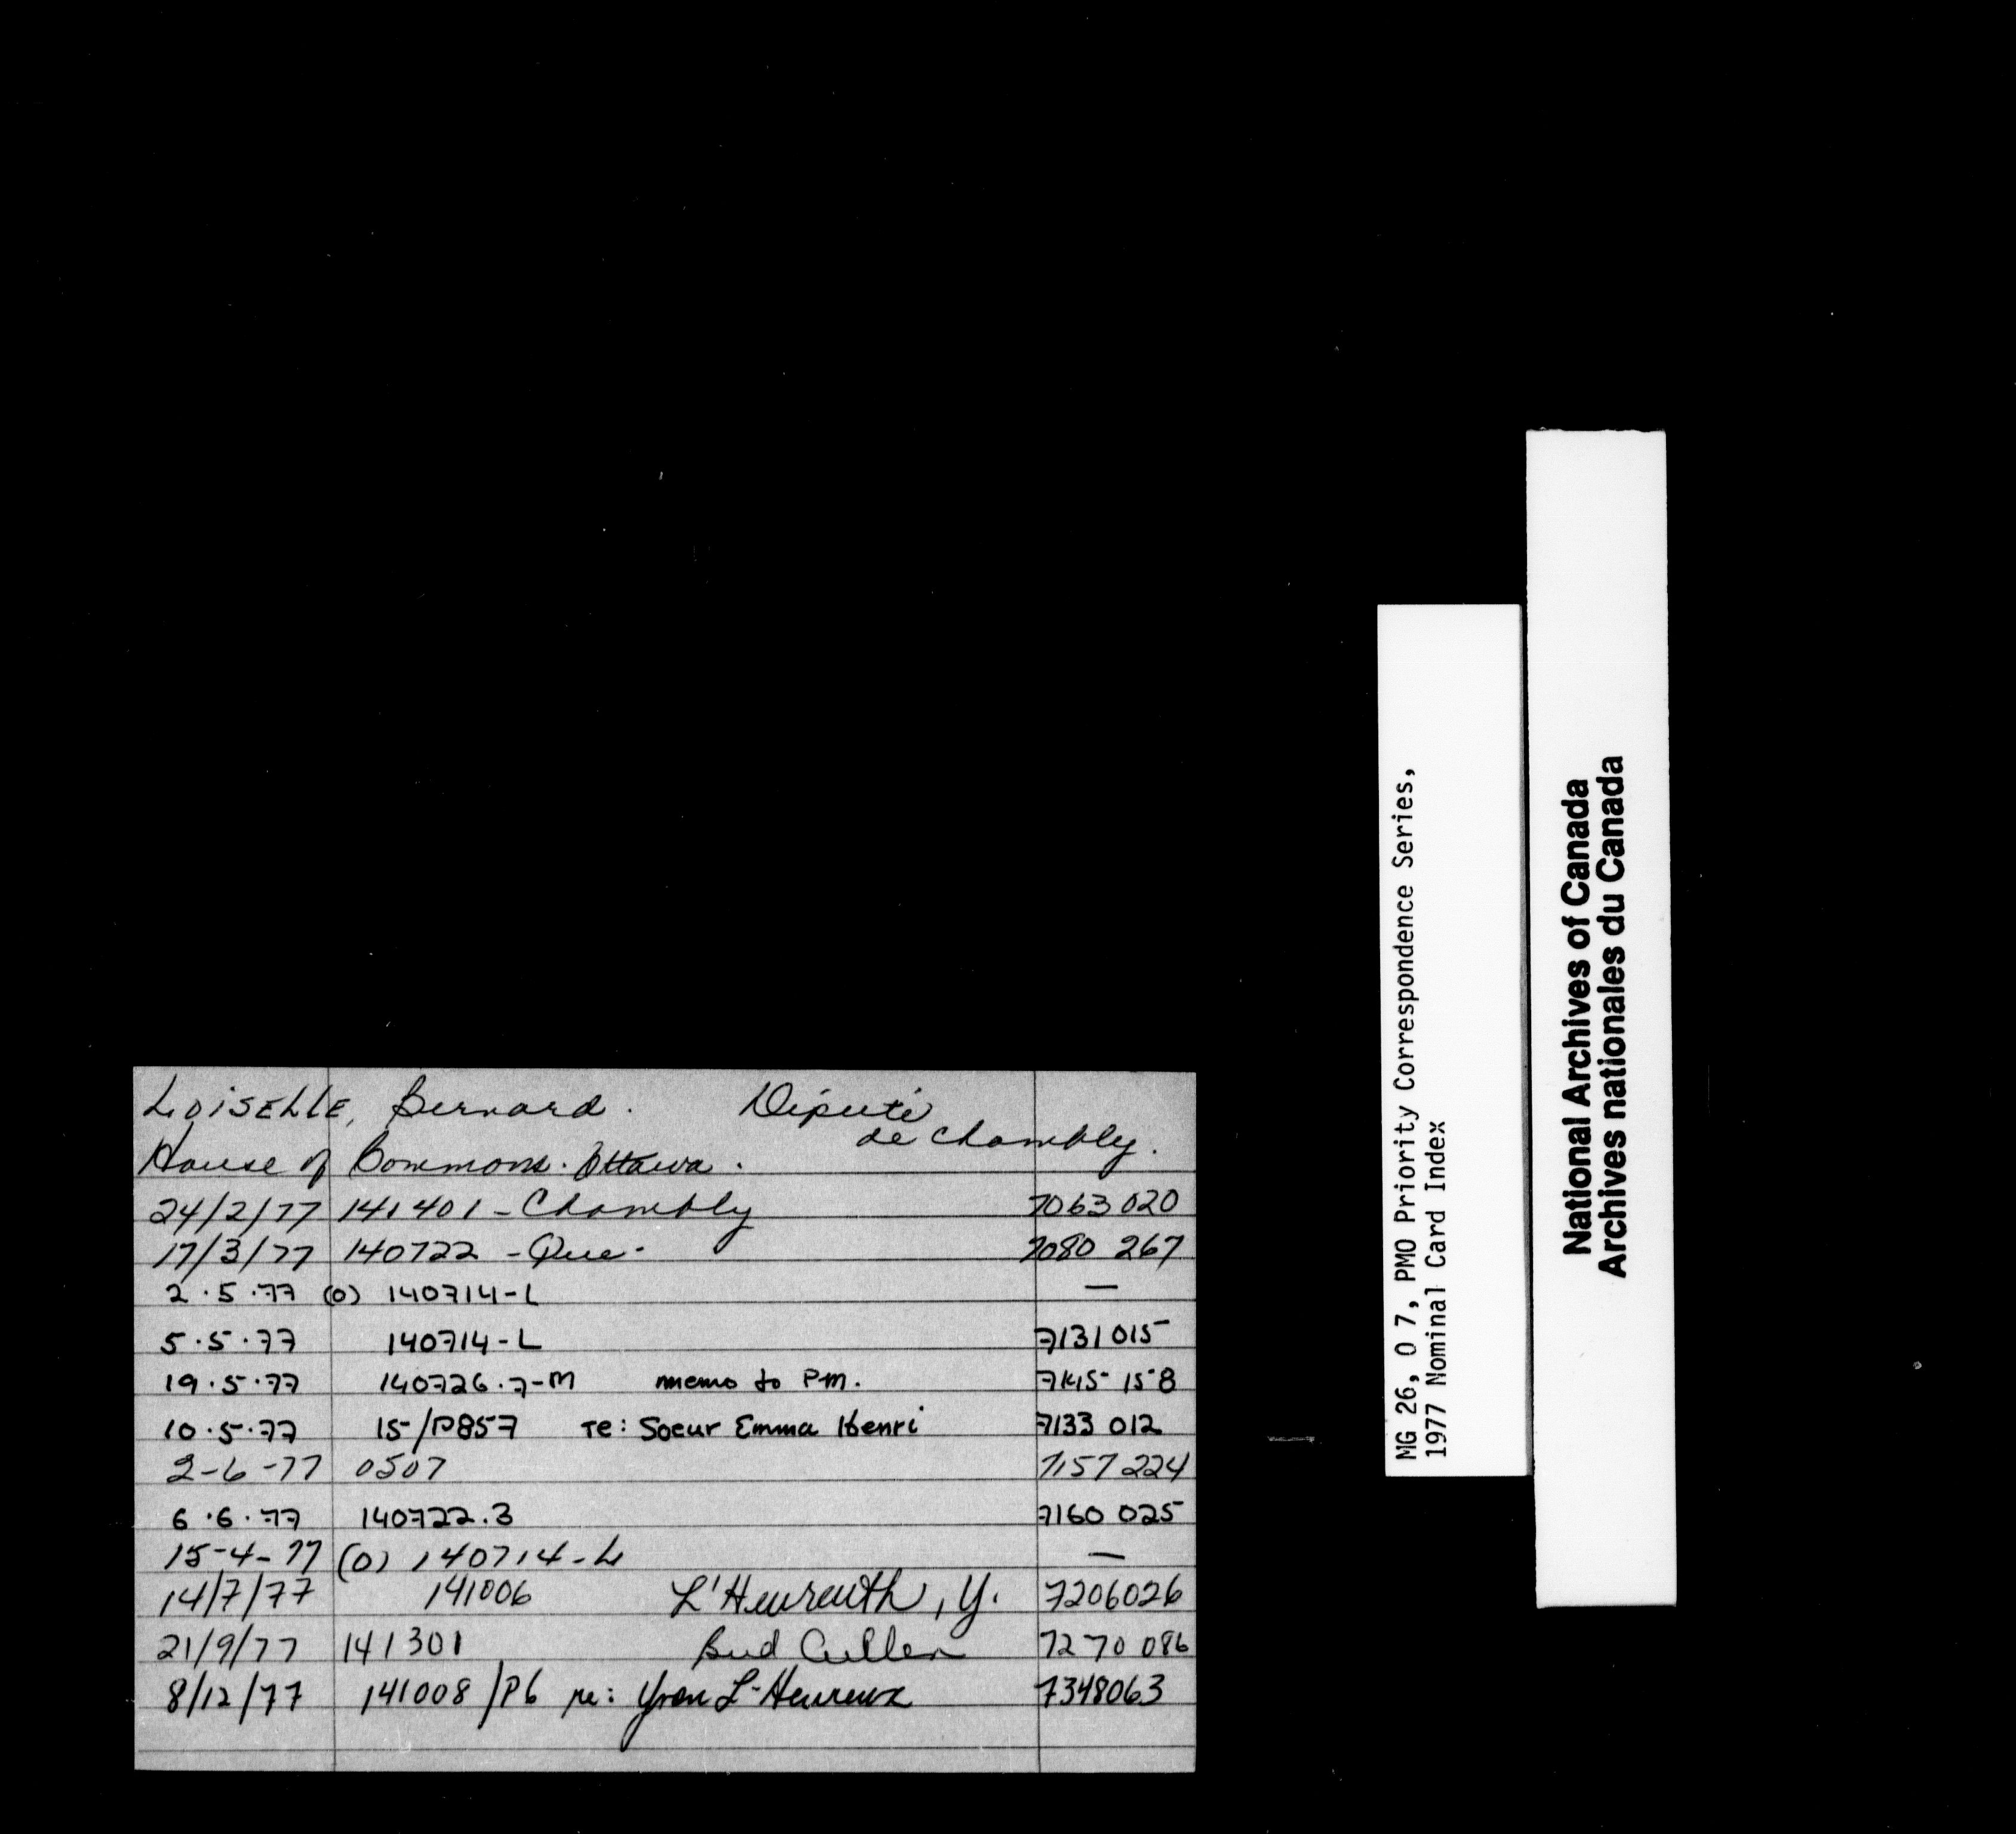 LOISELLE, Bernard. Député
de Chambly.
House of Commons. Ottawa.
24/2/77 141401 - Chambly 7063 020
17/3/77 140722 - Que. 7080 267
2.5.77 (0) 140714-L —
5.5.77 140714-L 7131 015
19.5.77 140726.7-M memo to P.M. 7145 158
10.5.77 15/P857 re: Soeur Emma Henri 7133 012
2-6-77 0507 7157 224
6.6.77 140722.3 7160 025
15-4-77 (0) 140714-L —
14/7/77 141006 L'Heureuth, Y. 7206026
21/9/77 141301 Bud Cullen 7270 086
8/12/77 141008/P6 re: Yvon L-Heureux 7348063
MG 26, O 7, PMO Priority Correspondence Series,
1977 Nominal Card Index
National Archives of Canada
Archives nationales du Canada